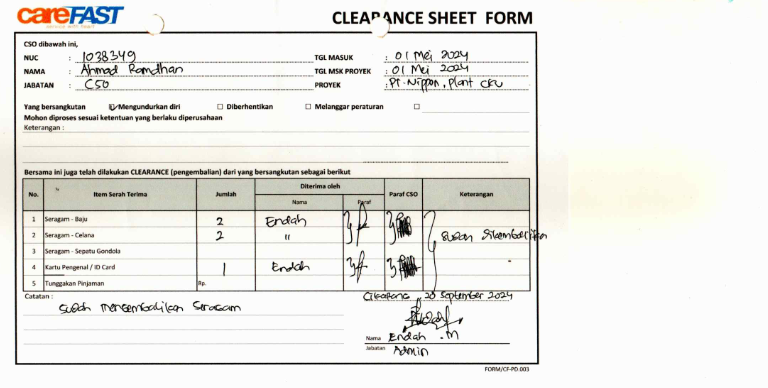 careFAST
CLEARANCE SHEET FORM
CSO dibawah ini,
NUC : 1038349 TGL MASUK : 01 Mei 2024
NAMA : Ahmad Ramdhan TGL MSK PROYEK : 01 Mei 2024
JABATAN : CSO PROYEK : PT. Nippon, Plant
Yang bersangkutan ☑ Mengundurkan diri ☐ Diberhentikan ☐ Melanggar peraturan ☐
Mohon diproses sesuai ketentuan yang berlaku diperusahaan
Keterangan :
Bersama ini juga telah dilakukan CLEARANCE (pengembalian) dari yang bersangkutan sebagai berikut
No. Item Serah Terima Jumlah Diterima oleh Paraf CSO Keterangan
Nama Paraf
1 Seragam - Baju 2 Endah
2 Seragam - Celana 2 " sudah dikembalikan
3 Seragam - Sepatu Gondola
4 Kartu Pengenal / ID Card 1 Endah
5 Tunggakan Pinjaman Rp.
Catatan : Cikarang, 20 September 2024
sudah mengembalikan seragam
Nama Endah . M
Jabatan Admin
FORM/CF-PD.003